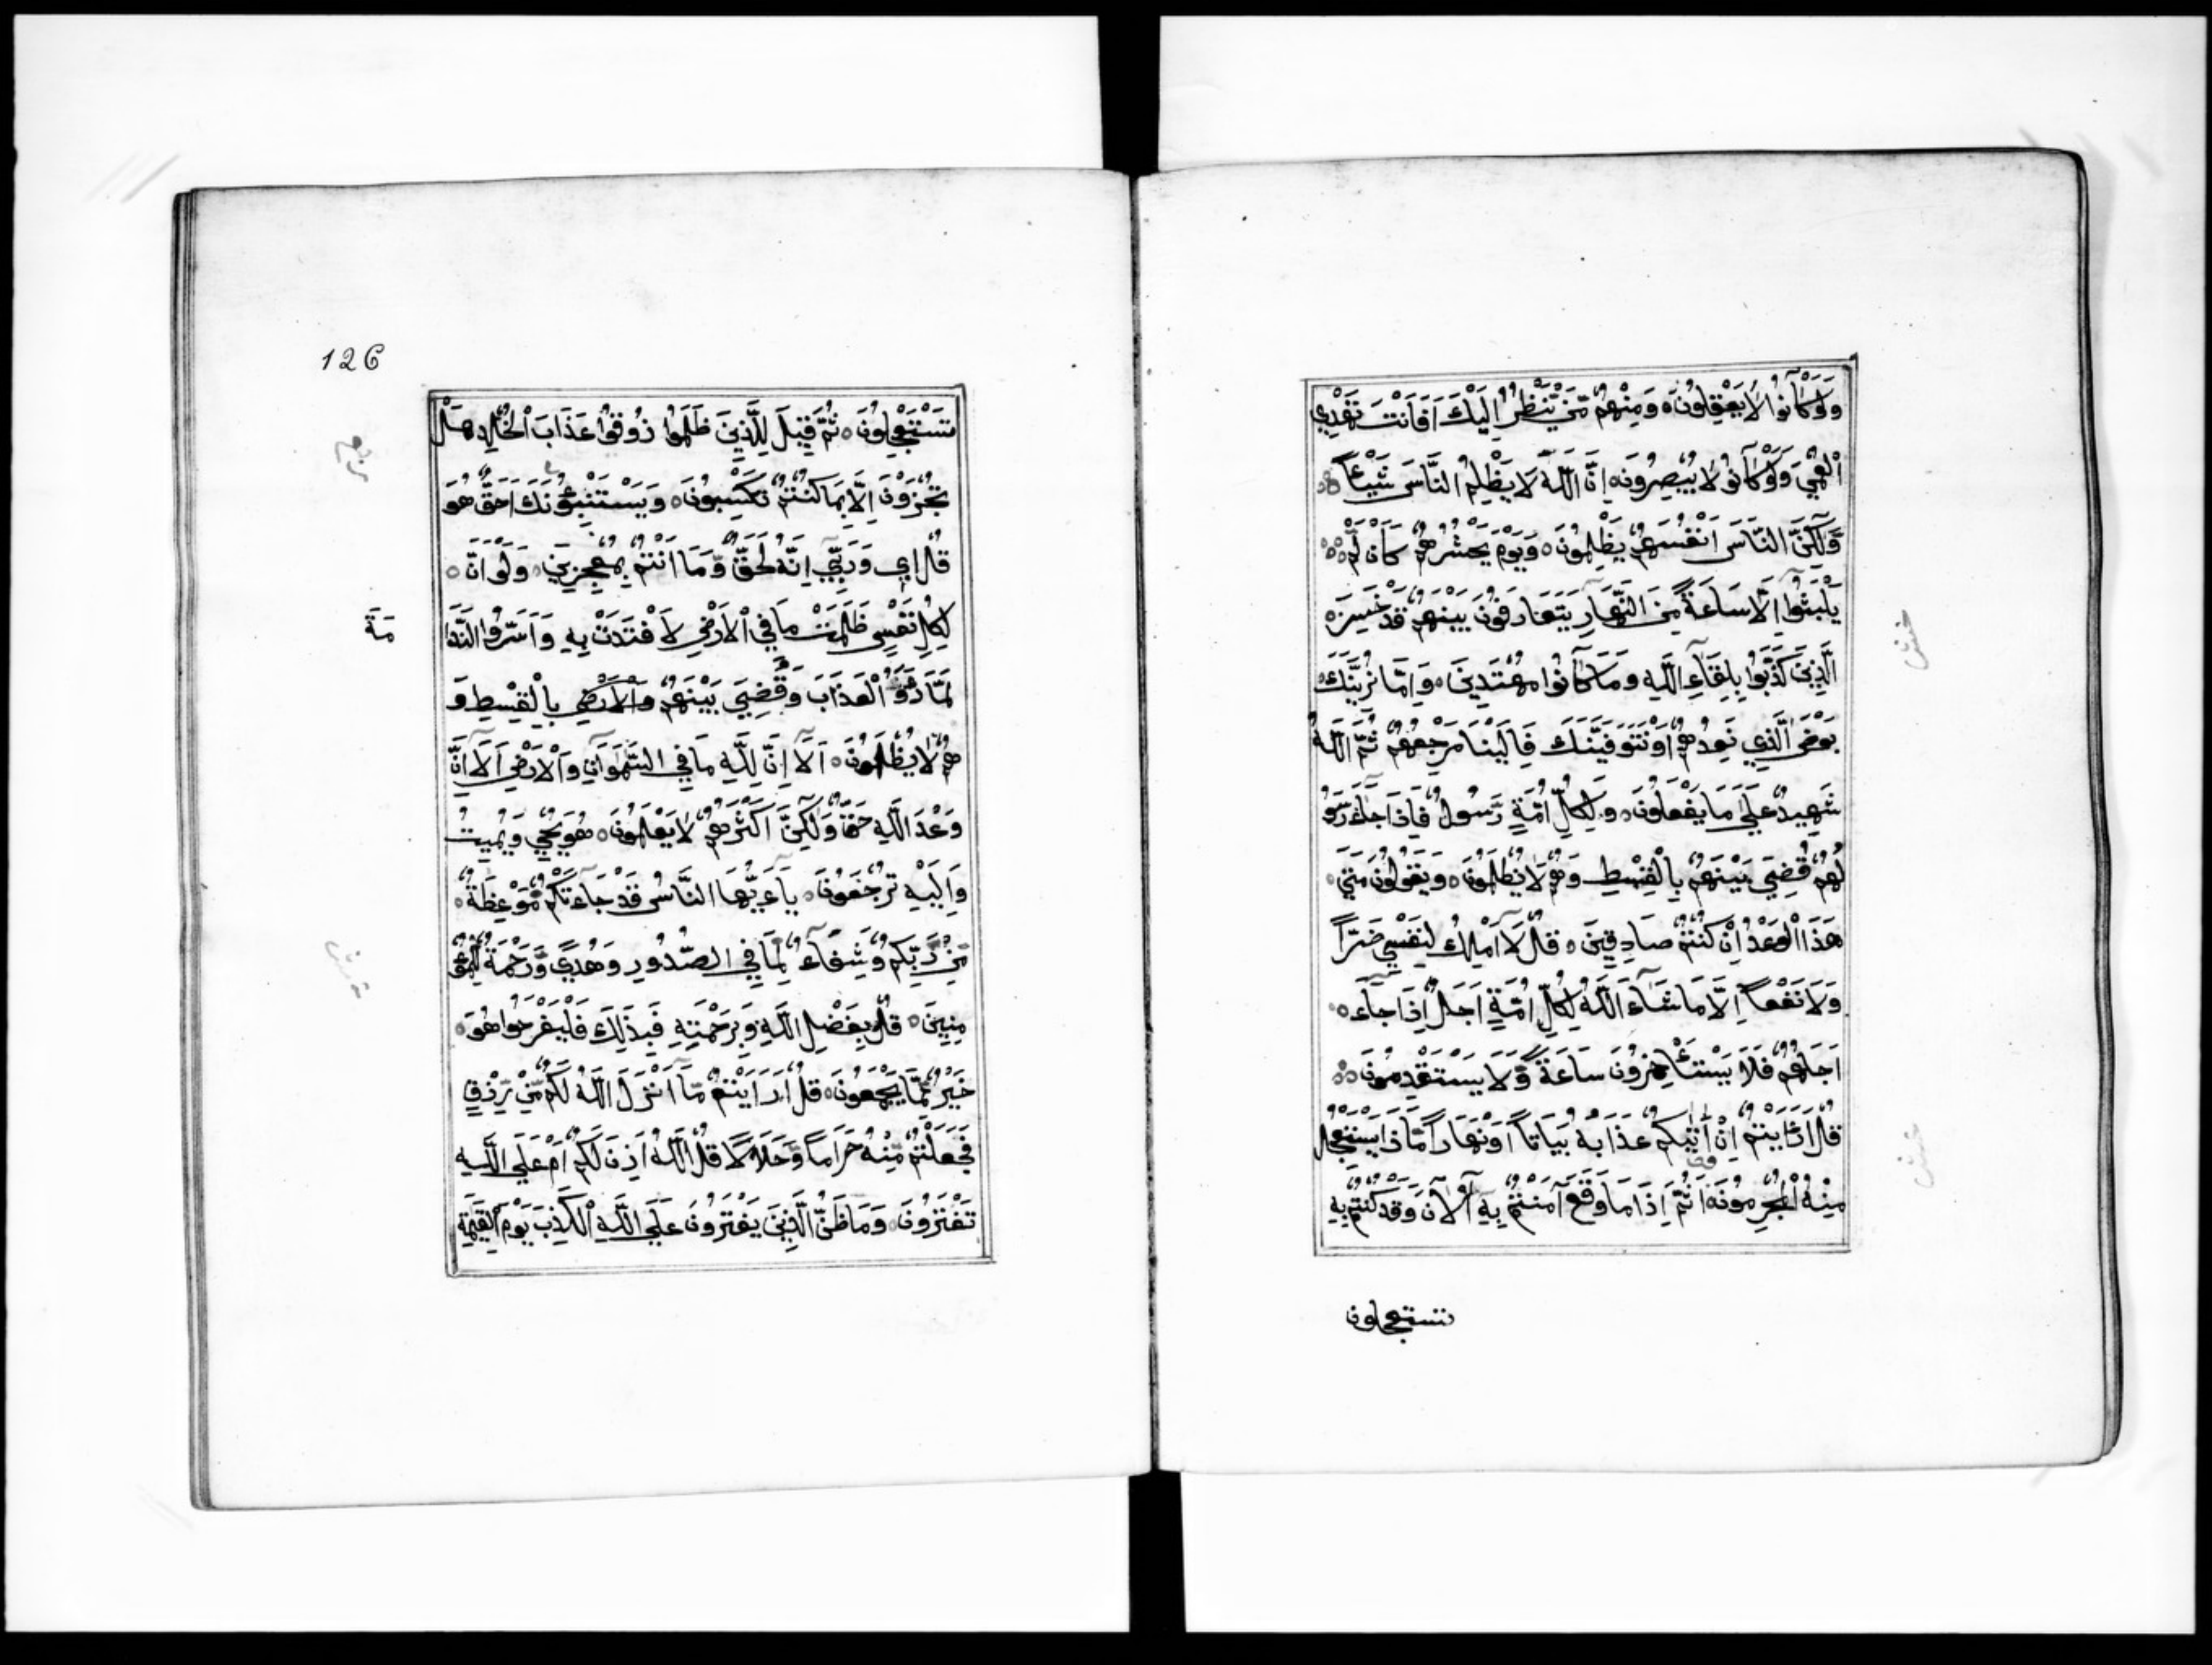 وَلَوْ كَانُوا لَا يَعْقِلُونَ ۝ وَمِنْهُمْ مَّنْ يَّنْظُرُ اِلَيْكَ اَفَاَنْتَ تَهْدِي
الْعُمْيَ وَلَوْ كَانُوا لَا يُبْصِرُونَ ۝ اِنَّ اللّٰهَ لَا يَظْلِمُ النَّاسَ شَيْئًا
وَّلٰكِنَّ النَّاسَ اَنْفُسَهُمْ يَظْلِمُونَ ۝ وَيَوْمَ يَحْشُرُهُمْ كَاَنْ لَّمْ
يَلْبَثُوا اِلَّا سَاعَةً مِّنَ النَّهَارِ يَتَعَارَفُونَ بَيْنَهُمْ قَدْ خَسِرَ
الَّذِينَ كَذَّبُوا بِلِقَآءِ اللّٰهِ وَمَا كَانُوا مُهْتَدِينَ ۝ وَاِمَّا نُرِيَنَّكَ
بَعْضَ الَّذِي نَعِدُهُمْ اَوْ نَتَوَفَّيَنَّكَ فَاِلَيْنَا مَرْجِعُهُمْ ثُمَّ اللّٰهُ
شَهِيدٌ عَلٰى مَا يَفْعَلُونَ ۝ وَلِكُلِّ اُمَّةٍ رَّسُولٌ فَاِذَا جَآءَ رَسُو
لُهُمْ قُضِيَ بَيْنَهُمْ بِالْقِسْطِ وَهُمْ لَا يُظْلَمُونَ ۝ وَيَقُولُونَ مَتٰى
هٰذَا الْوَعْدُ اِنْ كُنْتُمْ صَادِقِينَ ۝ قُلْ لَّا اَمْلِكُ لِنَفْسِي ضَرًّا
وَّلَا نَفْعًا اِلَّا مَا شَآءَ اللّٰهُ لِكُلِّ اُمَّةٍ اَجَلٌ اِذَا جَآءَ
اَجَلُهُمْ فَلَا يَسْتَأْخِرُونَ سَاعَةً وَّلَا يَسْتَقْدِمُونَ ۝
قُلْ اَرَاَيْتُمْ اِنْ اَتٰىكُمْ عَذَابُهُ بَيَاتًا اَوْ نَهَارًا مَّاذَا يَسْتَعْجِلُ
مِنْهُ الْمُجْرِمُونَ ۝ اَثُمَّ اِذَا مَا وَقَعَ آمَنْتُمْ بِهِ آلْآنَ وَقَدْ كُنْتُمْ بِهِ
تستعجلون
126
تَسْتَعْجِلُونَ ۝ ثُمَّ قِيلَ لِلَّذِينَ ظَلَمُوا ذُوقُوا عَذَابَ الْخُلْدِ هَلْ
تُجْزَوْنَ اِلَّا بِمَا كُنْتُمْ تَكْسِبُونَ ۝ وَيَسْتَنْبِئُونَكَ اَحَقٌّ هُوَ
قُلْ اِي وَرَبِّي اِنَّهُ لَحَقٌّ وَّمَا اَنْتُمْ بِمُعْجِزِينَ ۝ وَلَوْ اَنَّ
لِكُلِّ نَفْسٍ ظَلَمَتْ مَا فِي الْاَرْضِ لَافْتَدَتْ بِهِ وَاَسَرُّوا النَّدَا
مَةَ
لَمَّا رَاَوُا الْعَذَابَ وَقُضِيَ بَيْنَهُمْ بِالْقِسْطِ وَ
هُمْ لَا يُظْلَمُونَ ۝ اَلَا اِنَّ لِلّٰهِ مَا فِي السَّمٰوَاتِ وَالْاَرْضِ اَلَا اِنَّ
وَعْدَ اللّٰهِ حَقٌّ وَّلٰكِنَّ اَكْثَرَهُمْ لَا يَعْلَمُونَ ۝ هُوَ يُحْيِي وَيُمِيتُ
وَاِلَيْهِ تُرْجَعُونَ ۝ يَآءَيُّهَا النَّاسُ قَدْ جَآءَتْكُمْ مَّوْعِظَةٌ
مِّنْ رَّبِّكُمْ وَشِفَآءٌ لِّمَا فِي الصُّدُورِ وَهُدًى وَّرَحْمَةٌ لِّلْمُؤْ
مِنِينَ ۝ قُلْ بِفَضْلِ اللّٰهِ وَبِرَحْمَتِهِ فَبِذٰلِكَ فَلْيَفْرَحُوا هُوَ
خَيْرٌ مِّمَّا يَجْمَعُونَ ۝ قُلْ اَرَاَيْتُمْ مَّا اَنْزَلَ اللّٰهُ لَكُمْ مِّنْ رِّزْقٍ
فَجَعَلْتُمْ مِّنْهُ حَرَامًا وَّحَلَالًا قُلْ اللّٰهُ اَذِنَ لَكُمْ اَمْ عَلَى اللّٰهِ
تَفْتَرُونَ ۝ وَمَا ظَنُّ الَّذِينَ يَفْتَرُونَ عَلَى اللّٰهِ الْكَذِبَ يَوْمَ الْقِيٰمَةِ